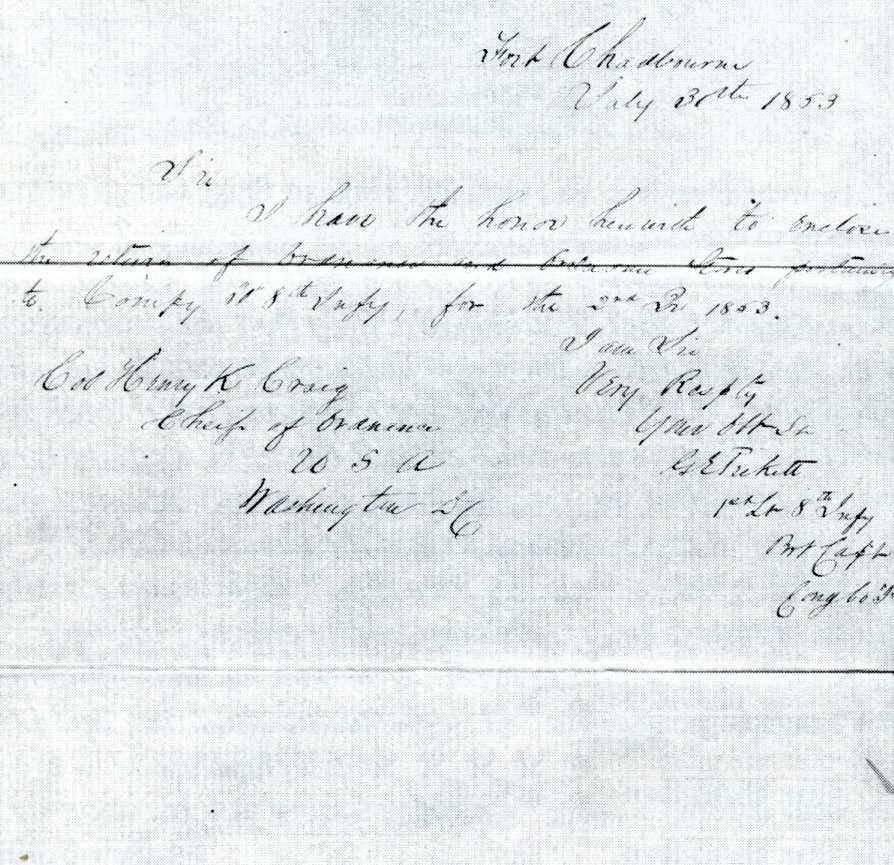 Fort Chadbourne
July 30th 1853
Sir
I have the honor herewith to enclose
the return of Ordnance and Ordnance Stores
to Compy 8th Infy, for the 2nd Qr 1853.
I am Sir
Very Respfty
Your Obt St
G E Pickett
1st Lt 8th Infy
Bvt Capt
Comg Co
Col Henry K Craig
Chief of Ordnance
U S A
Washington D C